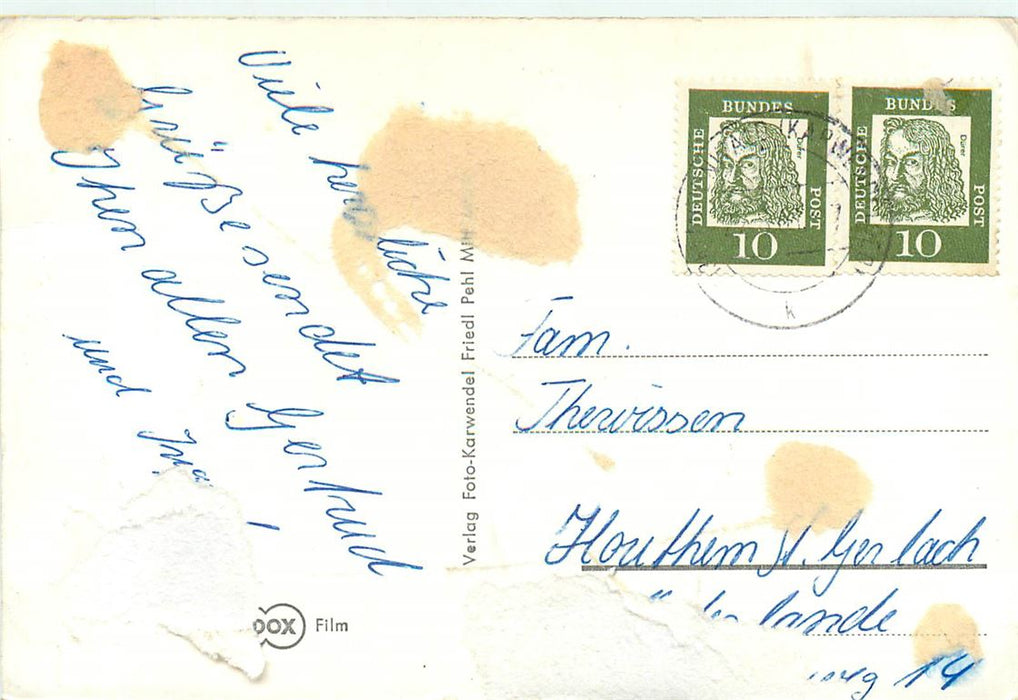 Viele herzliche
Grüße sendet
Ihnen allen Gertrud
und
Verlag Foto-Karwendel Friedl Pehl
BUNDES
DEUTSCHE
POST
Dürer
10
BUNDES
DEUTSCHE
POST
Dürer
10
k
Fam.
Thewissen
Houthem St. Gerlach
weg 14
Film